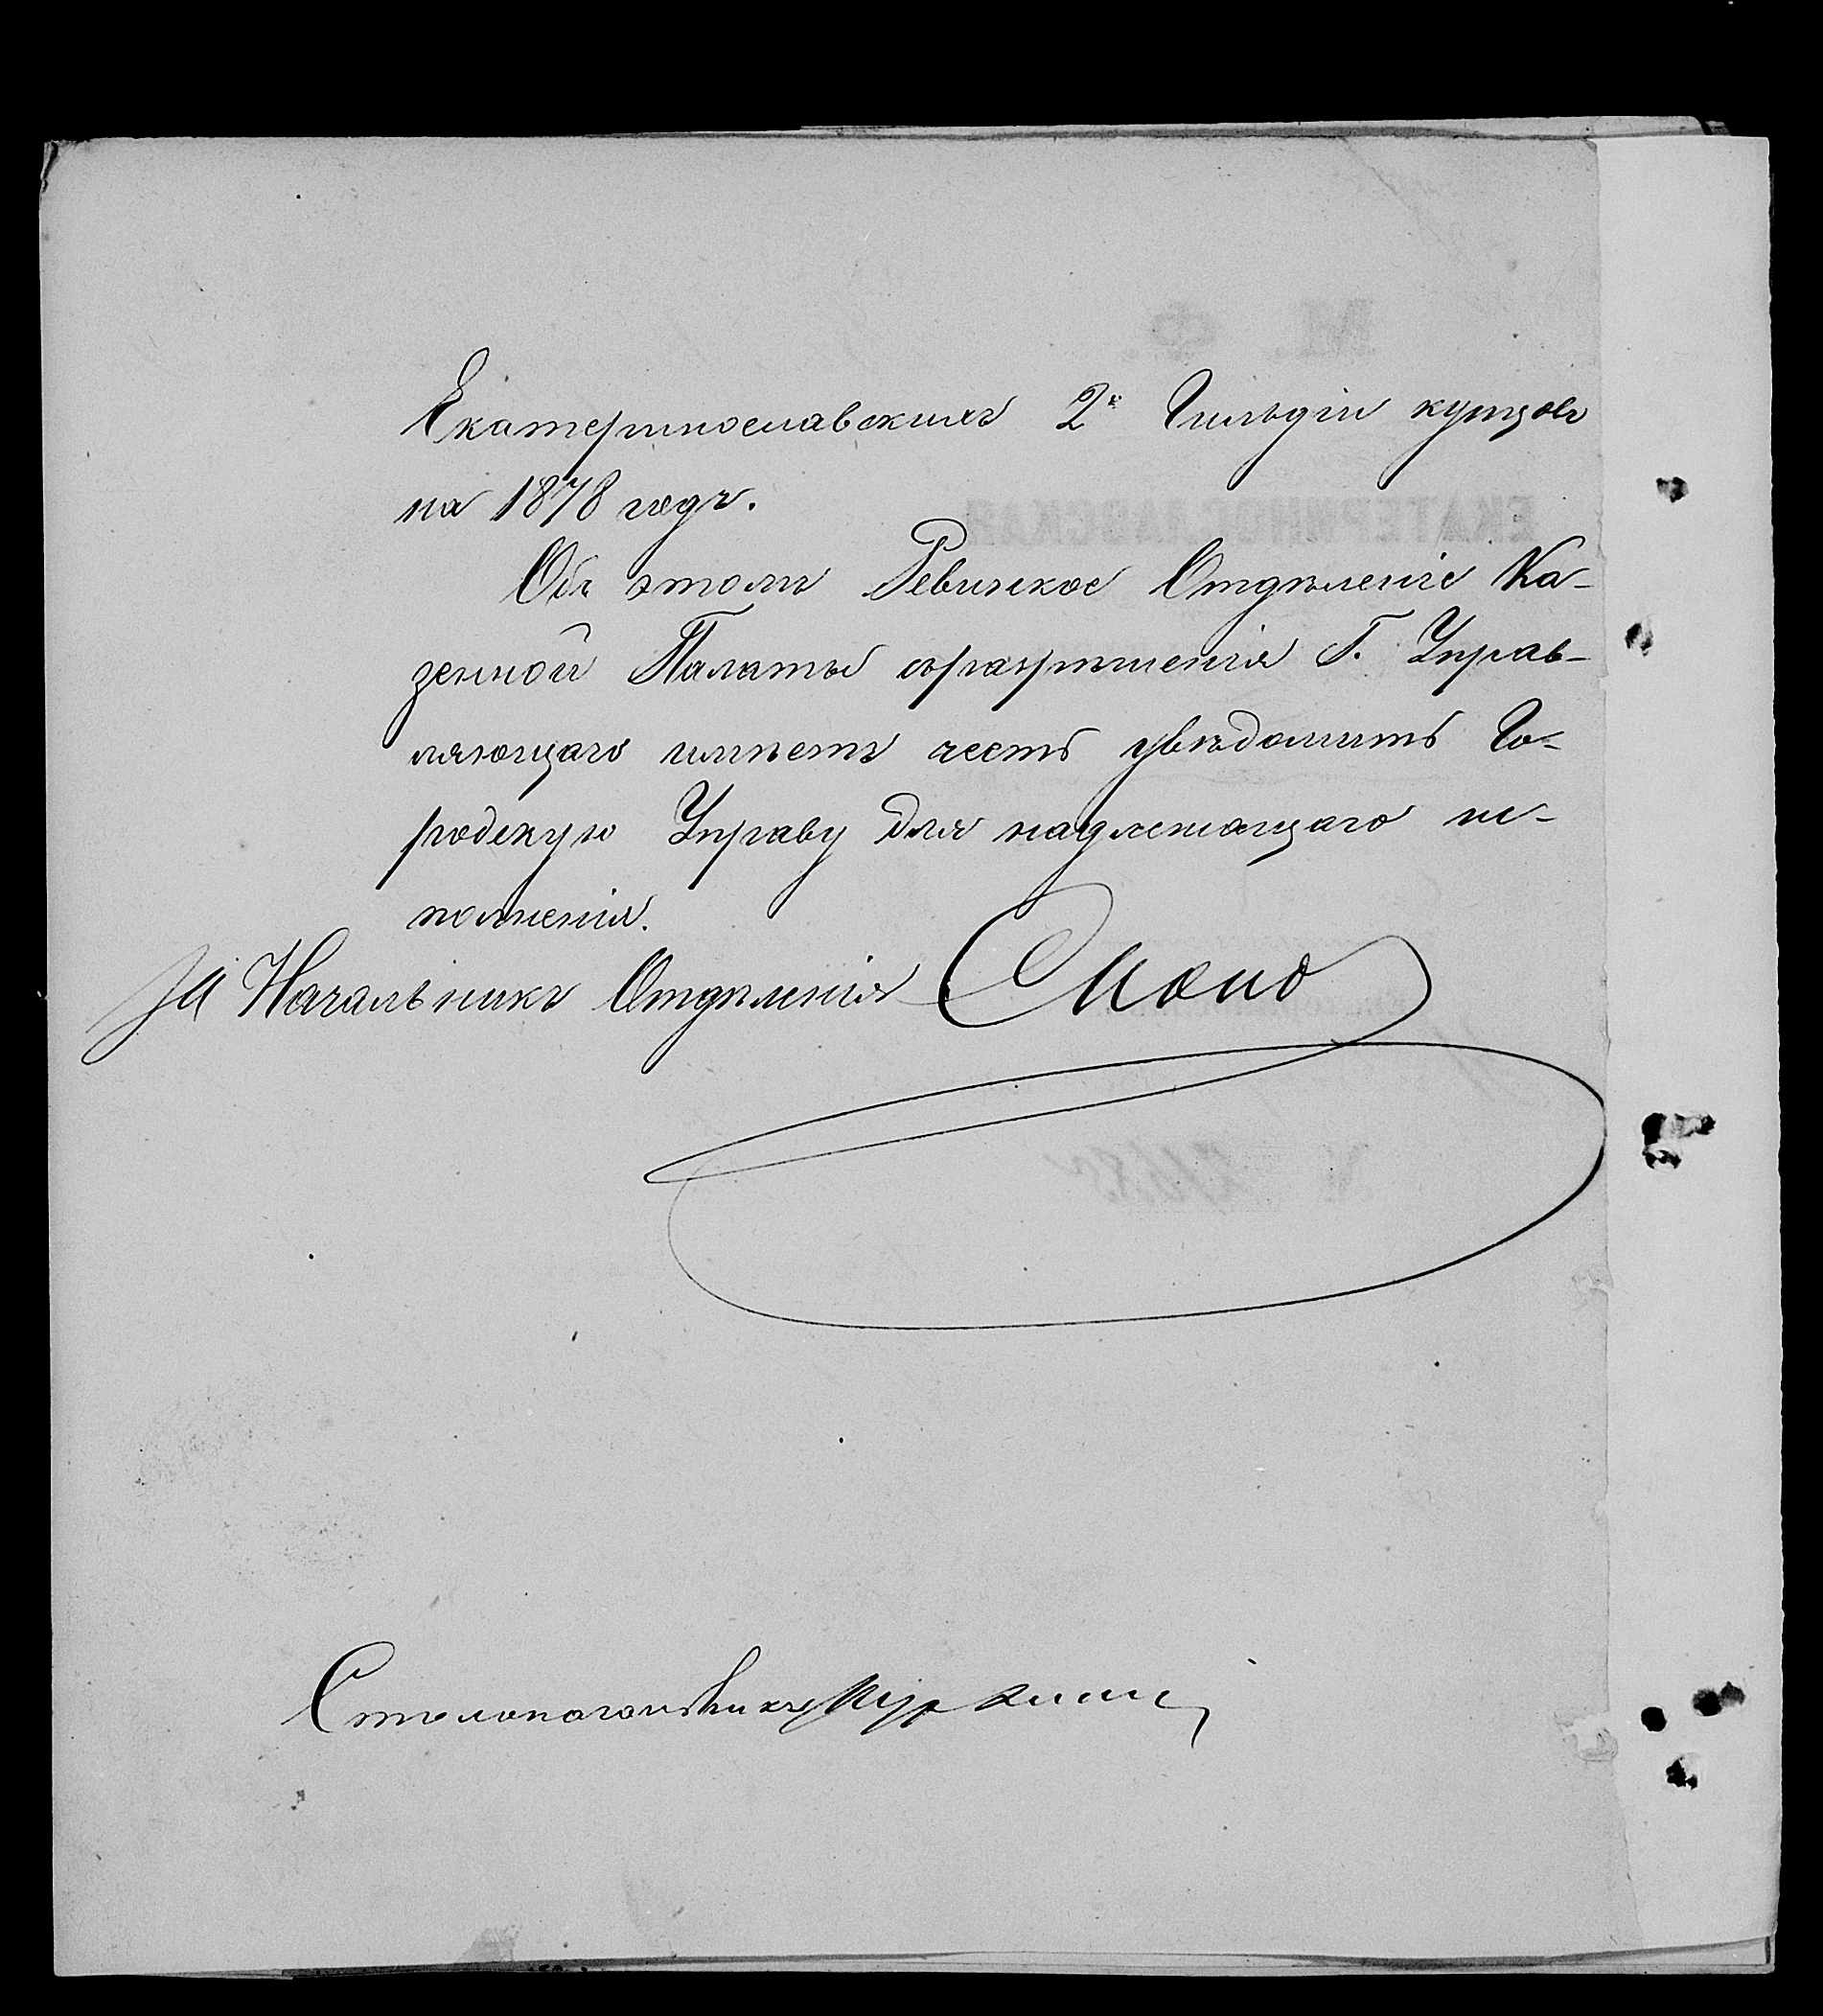 Екатеринославскихъ 2й Гильдіи купцовъ
на 1878 годъ.
Объ этомъ Ревизское Отдѣленіе Ка-
зенной Палаты съразрѣшенія Г. Управ-
ляющаго имѣетъ честь увѣдомить Го-
родскую Управу для надлежащаго ис-
полненія.
За Начальникъ Отдѣленія
Столоначальникъ